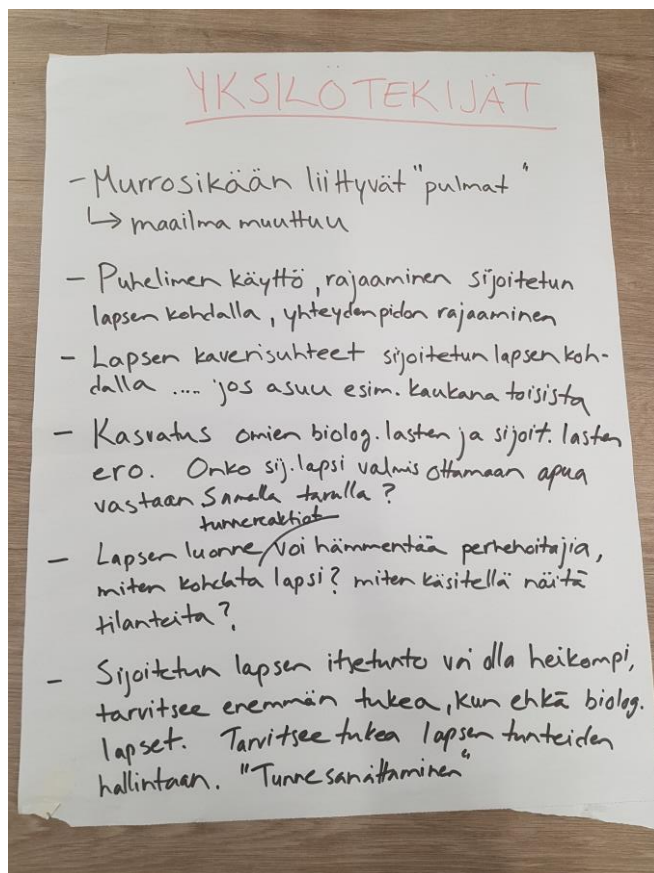 YKSILÖTEKIJÄT
- Murrosikään liittyvät "pulmat"
↳ maailma muuttuu
- Puhelimen käyttö, rajaaminen sijoitetun
lapsen kohdalla, yhteydenpidon rajaaminen
- Lapsen kaverisuhteet sijoitetun lapsen koh-
dalla .... jos asuu esim. kaukana toisista
- Kasvatus omien biolog. lasten ja sijoit. lasten
ero. Onko sij. lapsi valmis ottamaan apua
vastaan samalla tavalla?
tunnereaktiot
- Lapsen luonne / voi hämmentää perhehoitajia,
miten kohdata lapsi? miten käsitellä näitä
tilanteita?
- Sijoitetun lapsen itsetunto voi olla heikompi,
tarvitsee enemmän tukea, kun ehkä biolog.
lapset. Tarvitsee tukea lapsen tunteiden
hallintaan. "Tunnesanoittaminen"